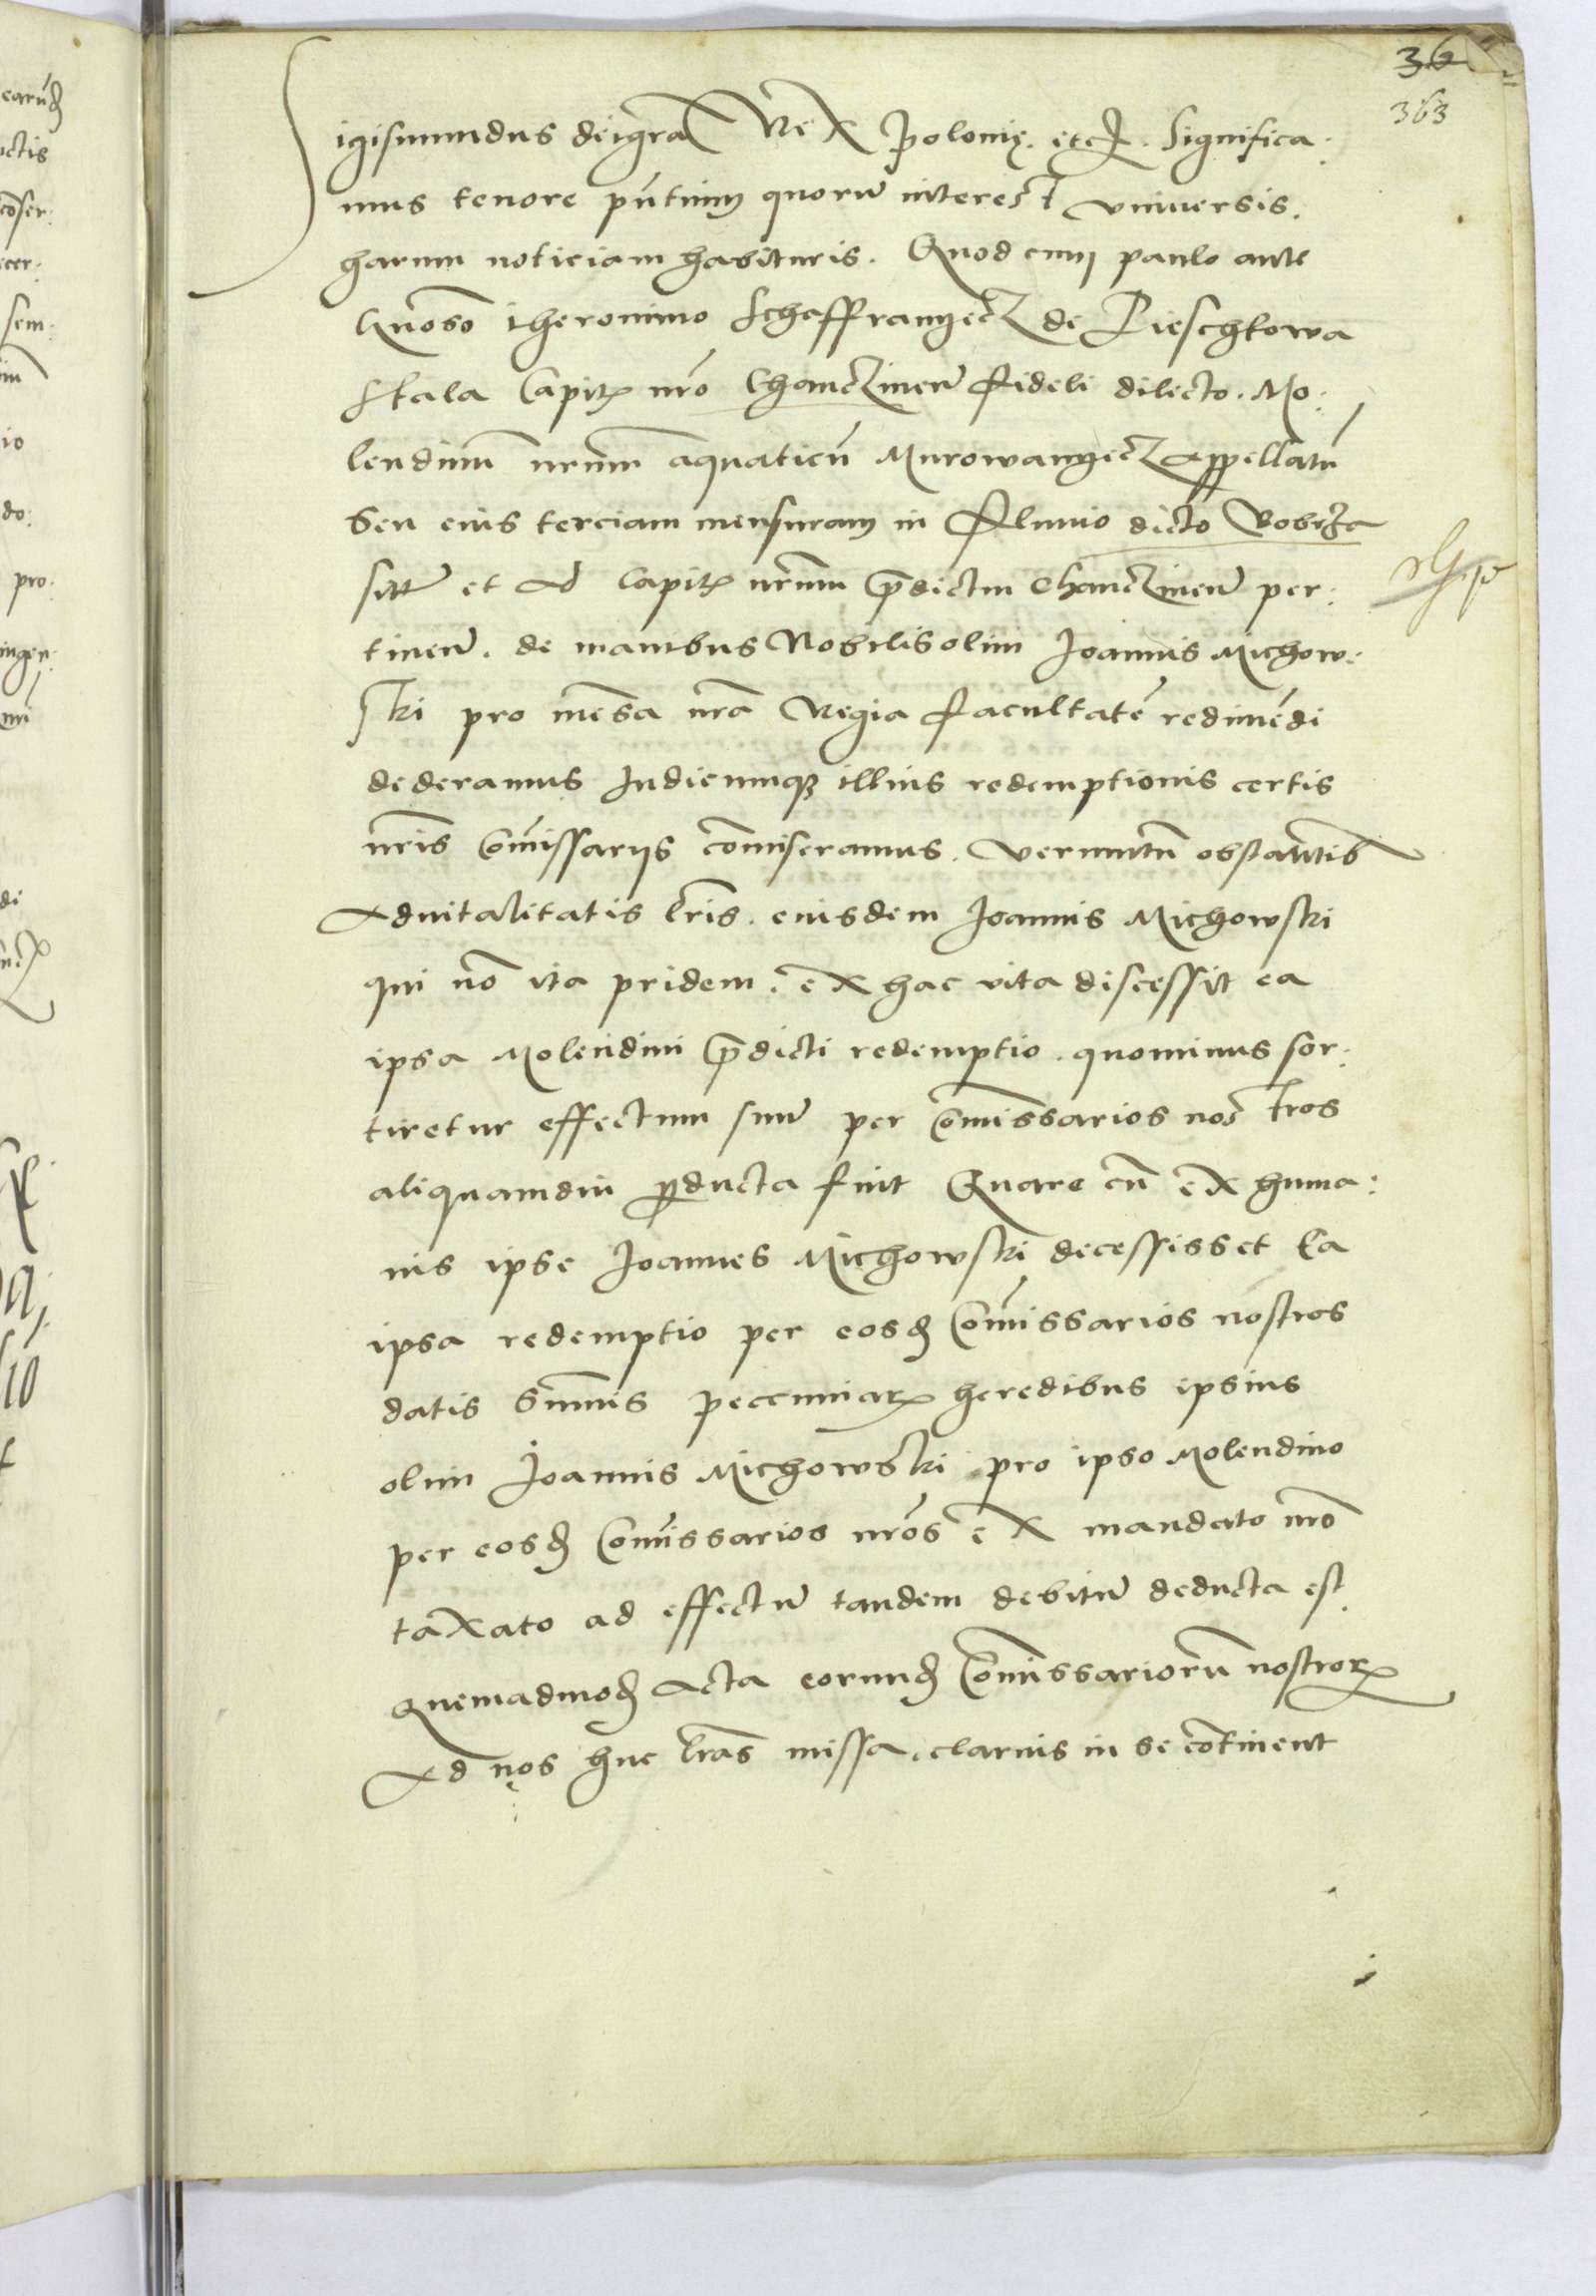 36
363
Sigismundus dei gr̃a Rex Polonię. etc̃. Significa:
mus tenore pñtium quorũ interest vniuersis.
harum noticiam habituris. Quod cum paulo ante
Gñoso Iheronimo Schaffranyecz de Pieschkowa
skala Capit. nr̃o Chanczineñ fideli dilecto. Mo:
lendinũ nrũm aquaticũ Murowanyecz Appellatũ
Seu eius terciam mensuram in Fluuio dicto Bobrza
sitũ et ad Capit. nrũm p̃dictm Chanczineñ per:
tineñ. de manibus Nobilis olim Ioannis Michow:
ski pro mẽsa nr̃a Regia facultatẽ redimẽdi
dederamus Iudiciumq3 illius redemptionis certis
nr̃is Com̃issarijs com̃iseramus. verumtñ obstantib9
Aduitalitatis lr̃is. eiusdem Ioannis Michowski
qui nõ ita pridem. ex hac vita discessit ea
ipsa Molendini p̃dicti redemptio. quominus sor:
tiretur effectum suũ per Com̃issarios nostros
aliquamdiu p̱ducta fuit Quare cũ ex huma:
nis ipse Ioannes Michowski decessisset Ea
ipsa redemptio per eosd̃ Com̃issarios nostros
datis sum̃is pecuniar. heredibus ipsius
olim Ioannis Michowski pro ipso Molendino
per eosd̃ Com̃issarios nr̃os ex mandato nr̃o
taxato ad effectũ tandem debitũ deducta est
quemadmod̃ Acta eorund̃ Com̃issariorũ nostror.
Ad nos huc lr̃as missa. clarius in se cõtinent